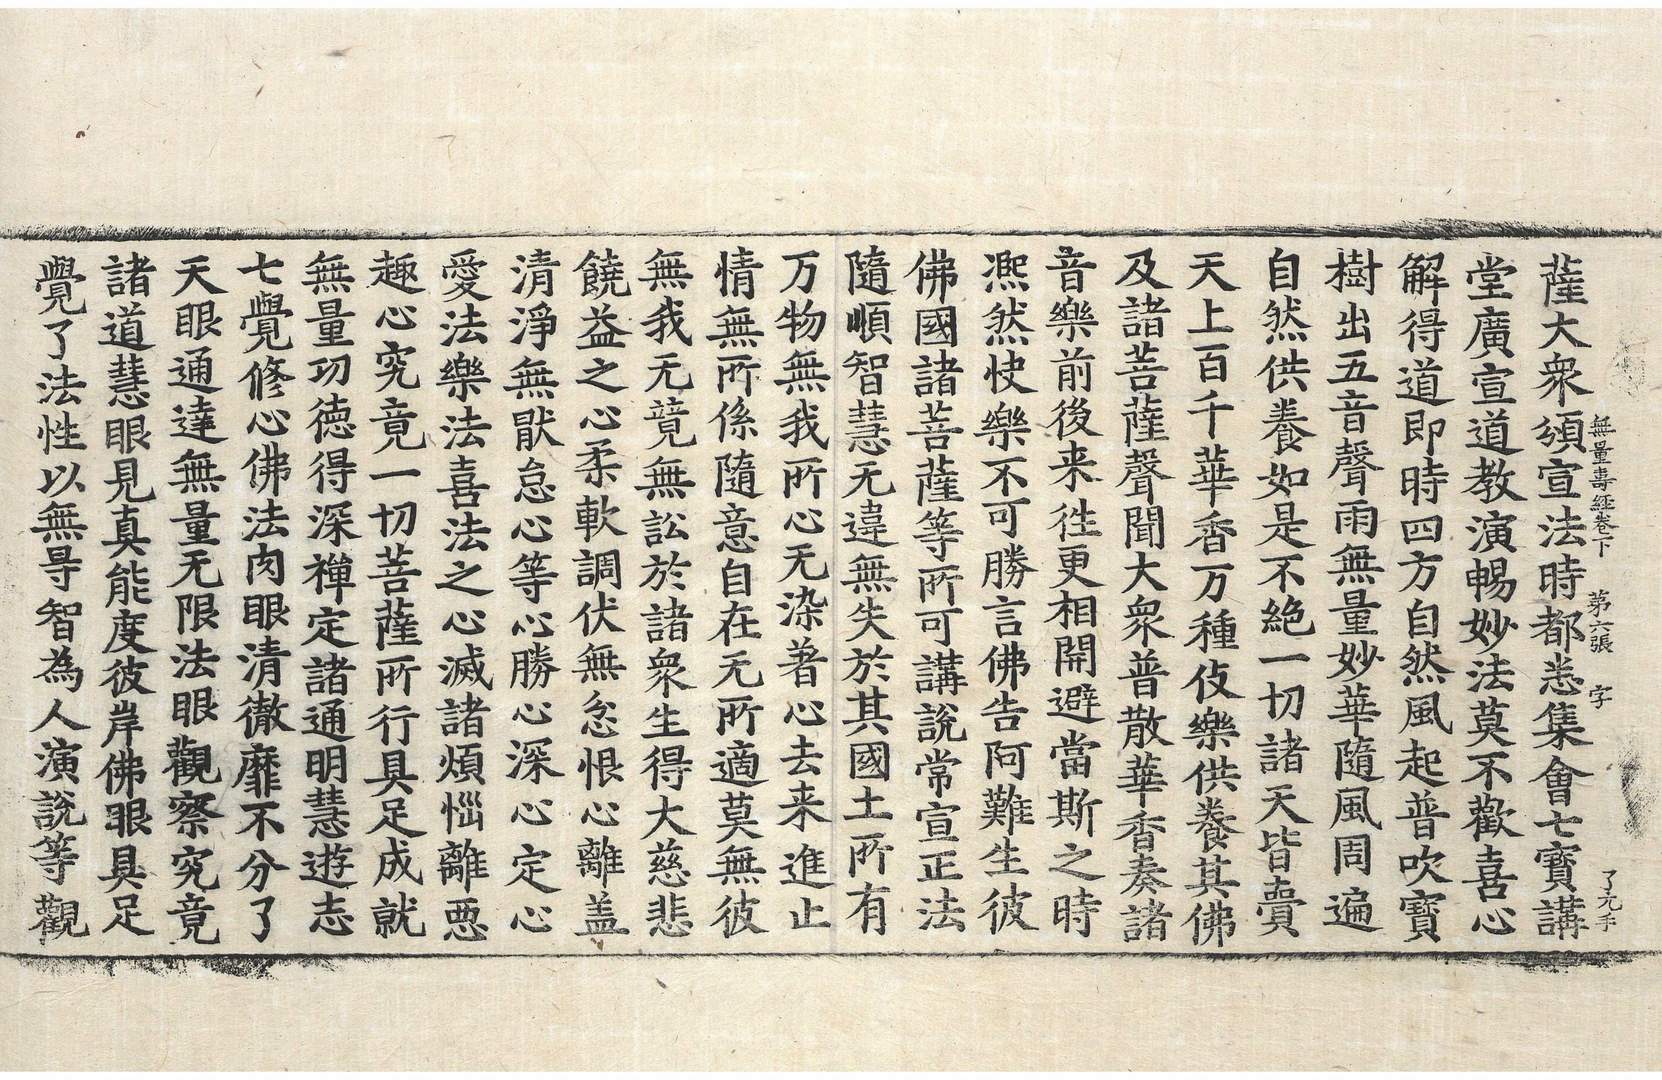 無量壽經卷下 第六張 字 了元手
薩大衆頒宣法時都悉集會七寶講
堂廣宣道教演暢妙法莫不歡喜心
解得道即時四方自然風起普吹寶
樹出五音聲雨無量妙華隨風周遍
自然供養如是不絶一切諸天皆賷
天上百千華香万種伎樂供養其佛
及諸菩薩聲聞大衆普散華香奏諸
音樂前後来徃更相開避當斯之時
凞然快樂不可勝言佛告阿難生彼
佛國諸菩薩等所可講說常宣正法
隨順智慧无違無失於其國土所有
万物無我所心无染著心去来進止
情無所係隨意自在无所適莫無彼
無我无竟無訟於諸衆生得大慈悲
饒益之心柔軟調伏無忿恨心離盖
清淨無猒怠心等心勝心深心定心
愛法樂法喜法之心滅諸煩惱離悪
趣心究竟一切菩薩所行具足成就
無量功徳得深禪定諸通明慧遊志
七覺修心佛法肉眼清徹靡不分了
天眼通達無量无限法眼觀察究竟
諸道慧眼見真能度彼岸佛眼具足
覺了法性以無㝵智為人演說等觀